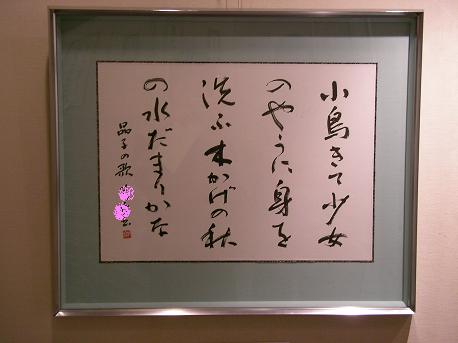 小鳥きて少女
のやうに身を
洗ふ木かげの秋
の水だまりかな
晶子の歌